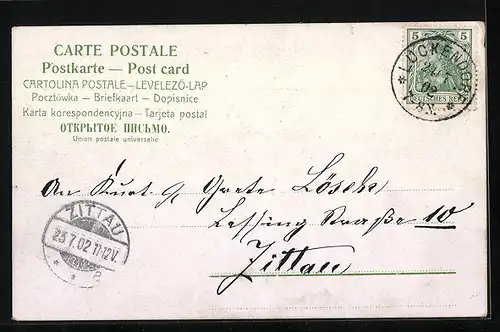 CARTE POSTALE
Postkarte — Post card
CARTOLINA POSTALE – LEVELEZŐ-LAP
Pocztówka — Briefkaart — Dopisnice
Karta korespondencyjna – Tarjeta postal
ОТКРЫТОЕ ПИСЬМО.
Union postale universelle
5 5
LÜCKENDORF
DEUTSCHES REICH
An Kurt & Grete Lösch
Lessing Straße 10
Zittau
ZITTAU
23.7.02.11-12V.